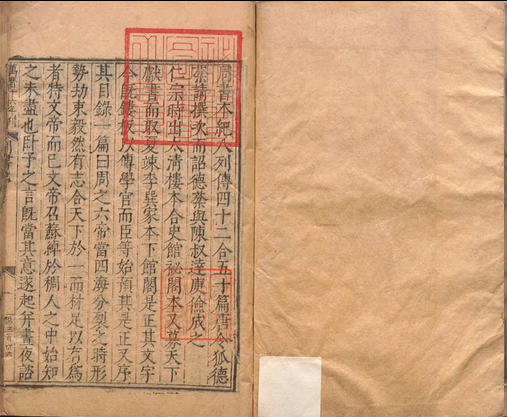 周書本紀八列傳四十二合五十篇唐令狐德
棻請撰次而詔德棻與陳叔達庾儉成之
仁宗時出太清樓本合史館祕閣本又募天下
獻書而取夏竦李巽家本下館閣是正其文字
今既鏤板以傳學官而臣等始預其是正又序
其目錄一篇曰周之六帝當四海分裂之時形
勢劫束毅然有志合天下於一而材足以有為
者特文帝而已文帝召蘇綽於稠人之中始知
之未盡也臥予之言既當其意遂起并晝夜諮